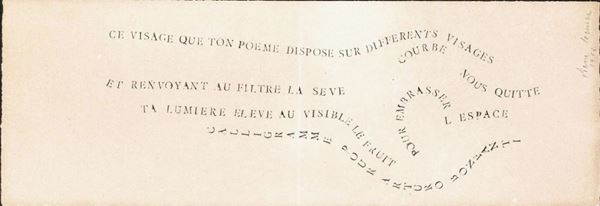 CE VISAGE QUE TON POEME DISPOSE SUR DIFFERENTS VISAGES
COURBE NOUS QUITTE
ET RENVOYANT AU FILTRE LA SEVE
TA LUMIERE ELEVE AU VISIBLE LE FRUIT
POUR EMBRASSER L ESPACE
CALLIGRAMME POUR ARTURO BONFANTI